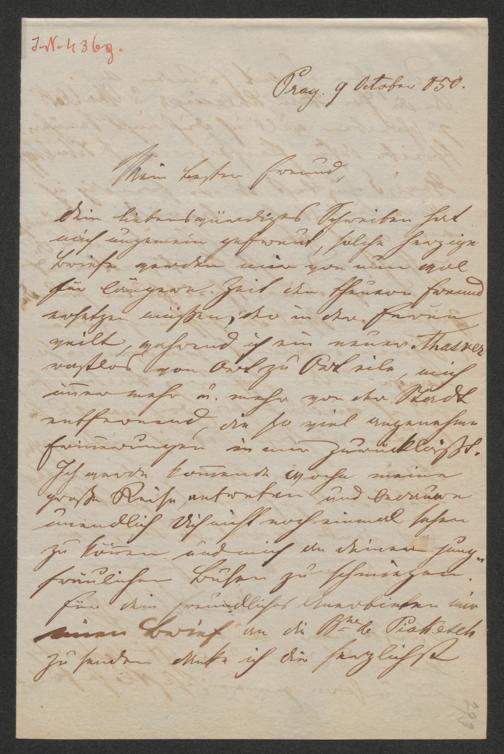 I.N. 4369.
Prag. 9 October 850.
Mein bester Freund,
Dein liebenswürdiges Schreiben hat
mich ungemein gefreut, solche herzige
Briefe werden mir von nun wol
für längere Zeit den theuern Freund
ersetzen müssen, der in der Ferne
weilt, während ich ein neuer Ahasver
rastlos von Ort zu Ort eile, mich
immer mehr u. mehr von der Stadt
entfernend, die so viel angenehme
Erinnerungen in mir zurückläßt.
Ich werde kommende Woche meine
große Reise antreten und bedaure
unendlich Dich nicht noch einmal sehen
zu können und mich an deinen jung-
fräulichen Busen zu schmiegen.
Für dein freundliches Anerbieten mir
einen Brief an die Bne de Prokesch
zu senden danke ich dir herzlichst